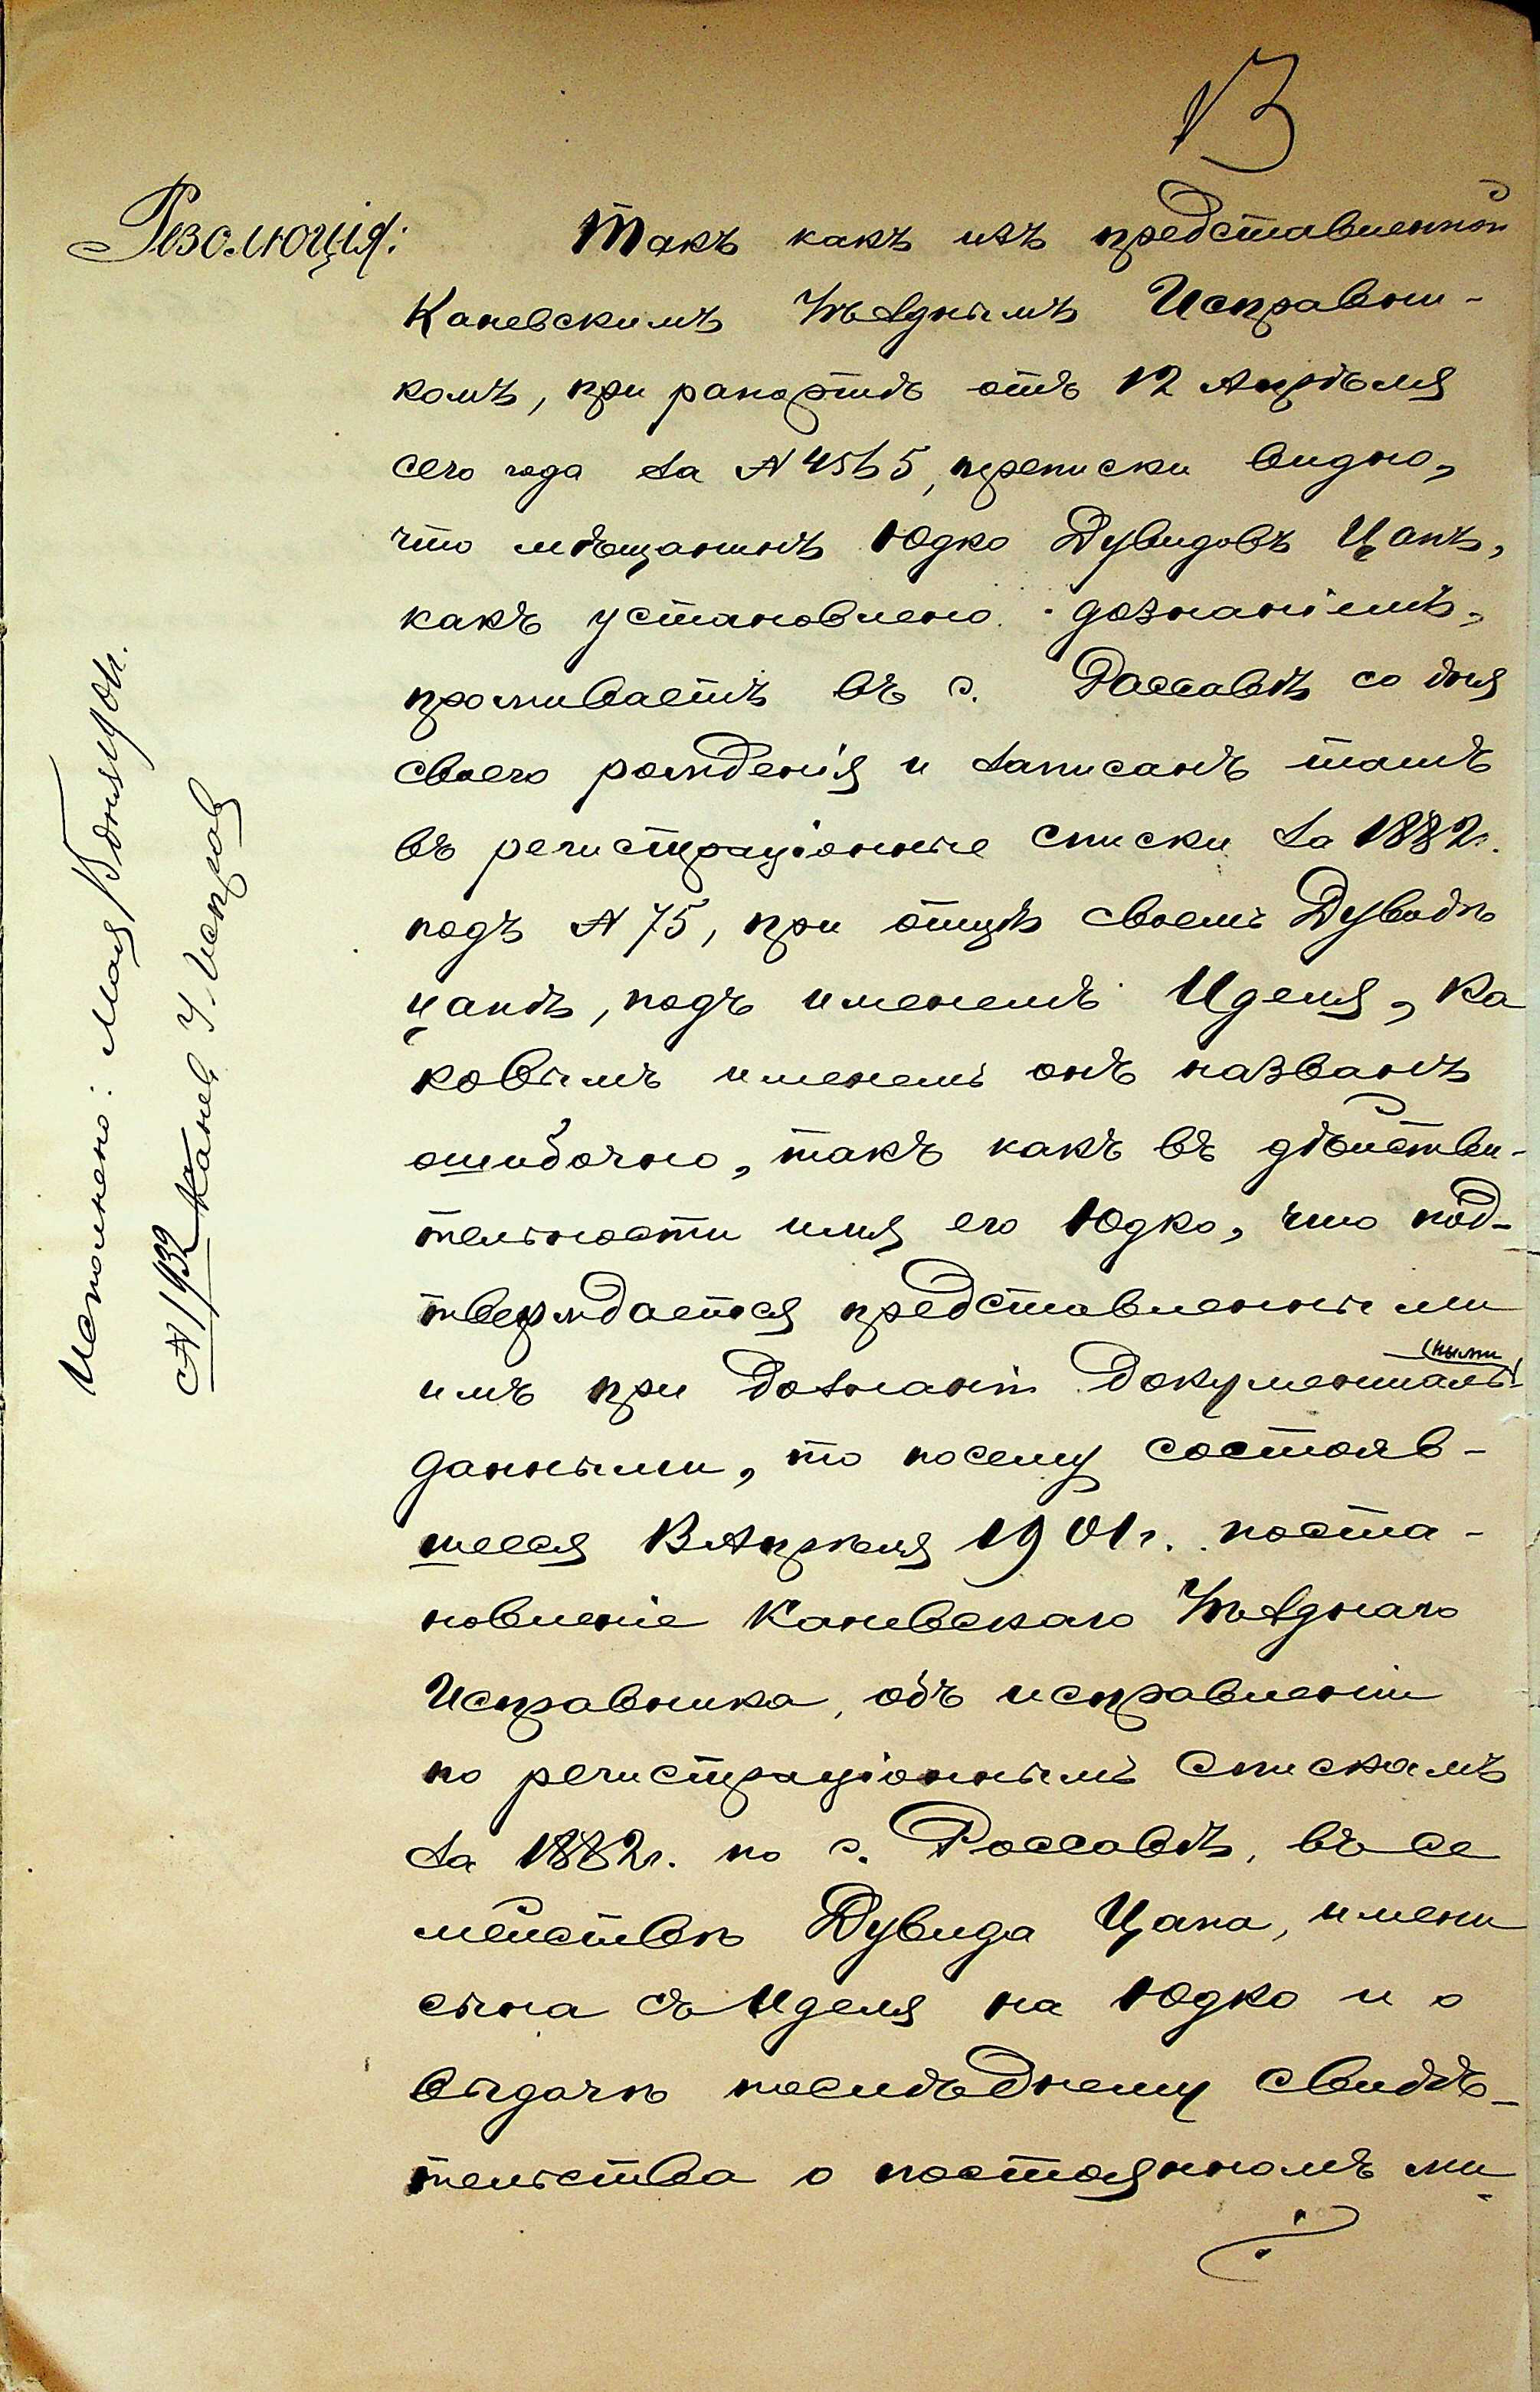 13
Резолюція:
Такъ какъ изъ представленной
Каневскимъ Уѣзднымъ Исправни-
комъ, при рапортѣ отъ 12 Апрѣля
сего года за №, переписки видно,
что мѣщанинъ Юдко Дувидовъ Цапъ,
какъ установлено дознаніемъ,
проживаетъ въ с. Россавѣ со дня
своего рожденія и записанъ тамъ
въ регистраціонные списки за 1882г.
подъ № 75, при отцѣ своемъ Дувидѣ
Цапѣ, подъ именемъ Иделя, ка
ковымъ именемъ онъ названъ
ошибочно, такъ какъ въ дѣйстви-
тельности имя его Юдко, что под-
тверждается представленными
имъ при дознаніи документаль
ными
данными, то посему состояв-
шееся Апрѣля 1901г. поста-
новленіе Каневскаго Уѣзднаго
Исправника, объ исправленіи
по регистраціоннымъ спискамъ
за 1882г. по с. Россавѣ, въ се
мействѣ Дувида Цапа, имени
сына съ Иделя на Юдко и о
выдачѣ послѣднему свидѣ-
тельства о постоянномъ жи-
Исполнено: Мая дня 1901г.
№ 1932 Канев. У. Исправ